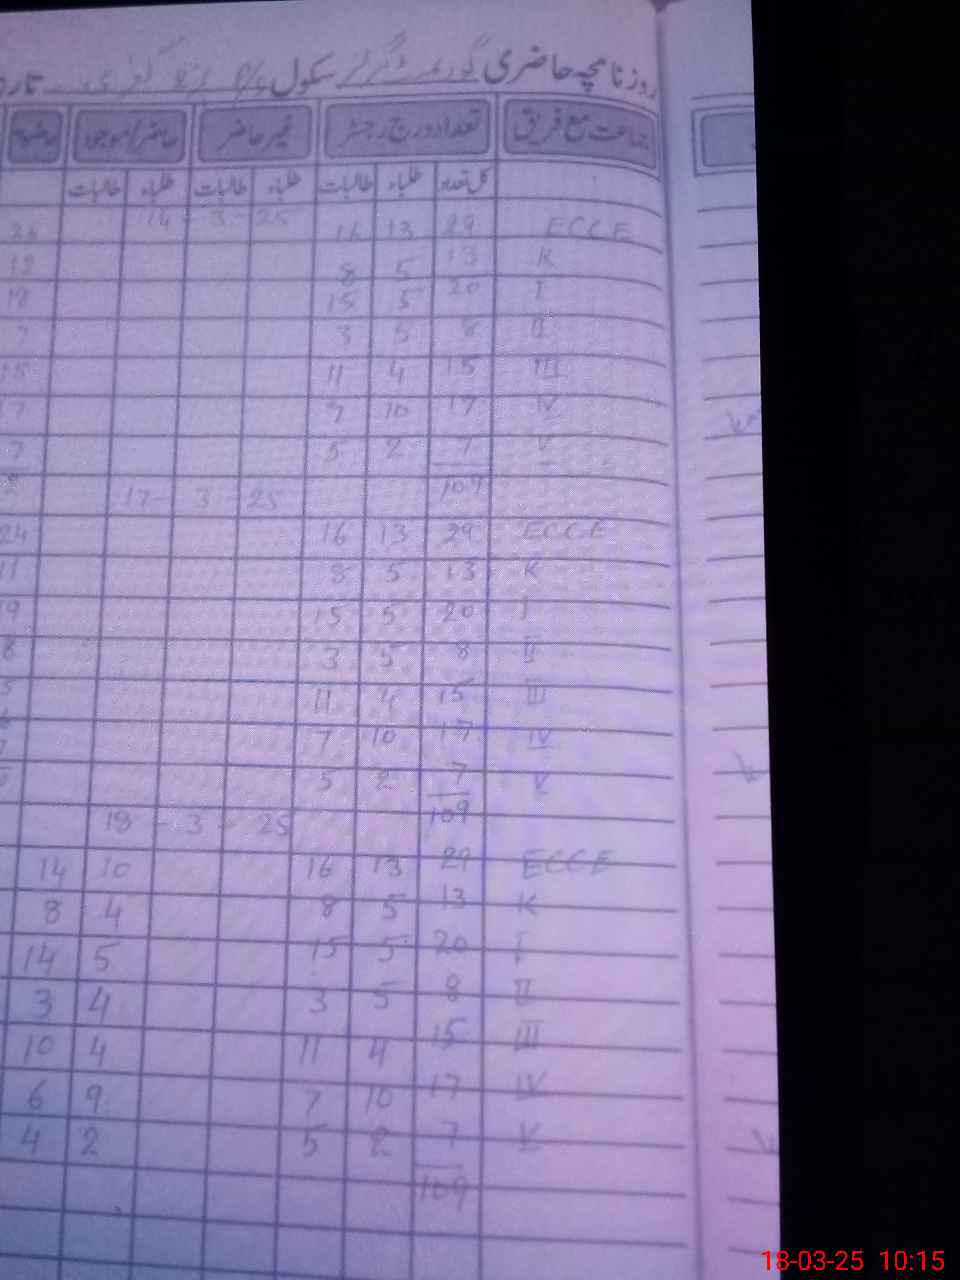 روزنامچہ حاضری گورنمنٹ گرلز سکول
جماعت مع فریق تعداد درج رجسٹر غیر حاضر حاضر/موجود
کل تعداد طلباء طالبات طلباء طالبات طلباء طالبات
14 - 3 - 25
ECCE 29 13 16
K 13 5 8
I 20 5 15
II 8 5 3
III 15 4 11
IV 17 10 7
V 7 2 5
109
17 - 3 - 25
ECCE 29 13 16 24
K 13 5 8 11
I 20 5 15 19
II 8 5 3 8
III 15 4 11
IV 17 10 7
V 7 2 5
109
18 - 3 - 25
ECCE 29 13 16 10 14
K 13 5 8 4 8
I 20 5 15 5 14
II 8 5 3 4 3
III 15 4 11 4 10
IV 17 10 7 9 6
V 7 2 5 2 4
109
18-03-25 10:15